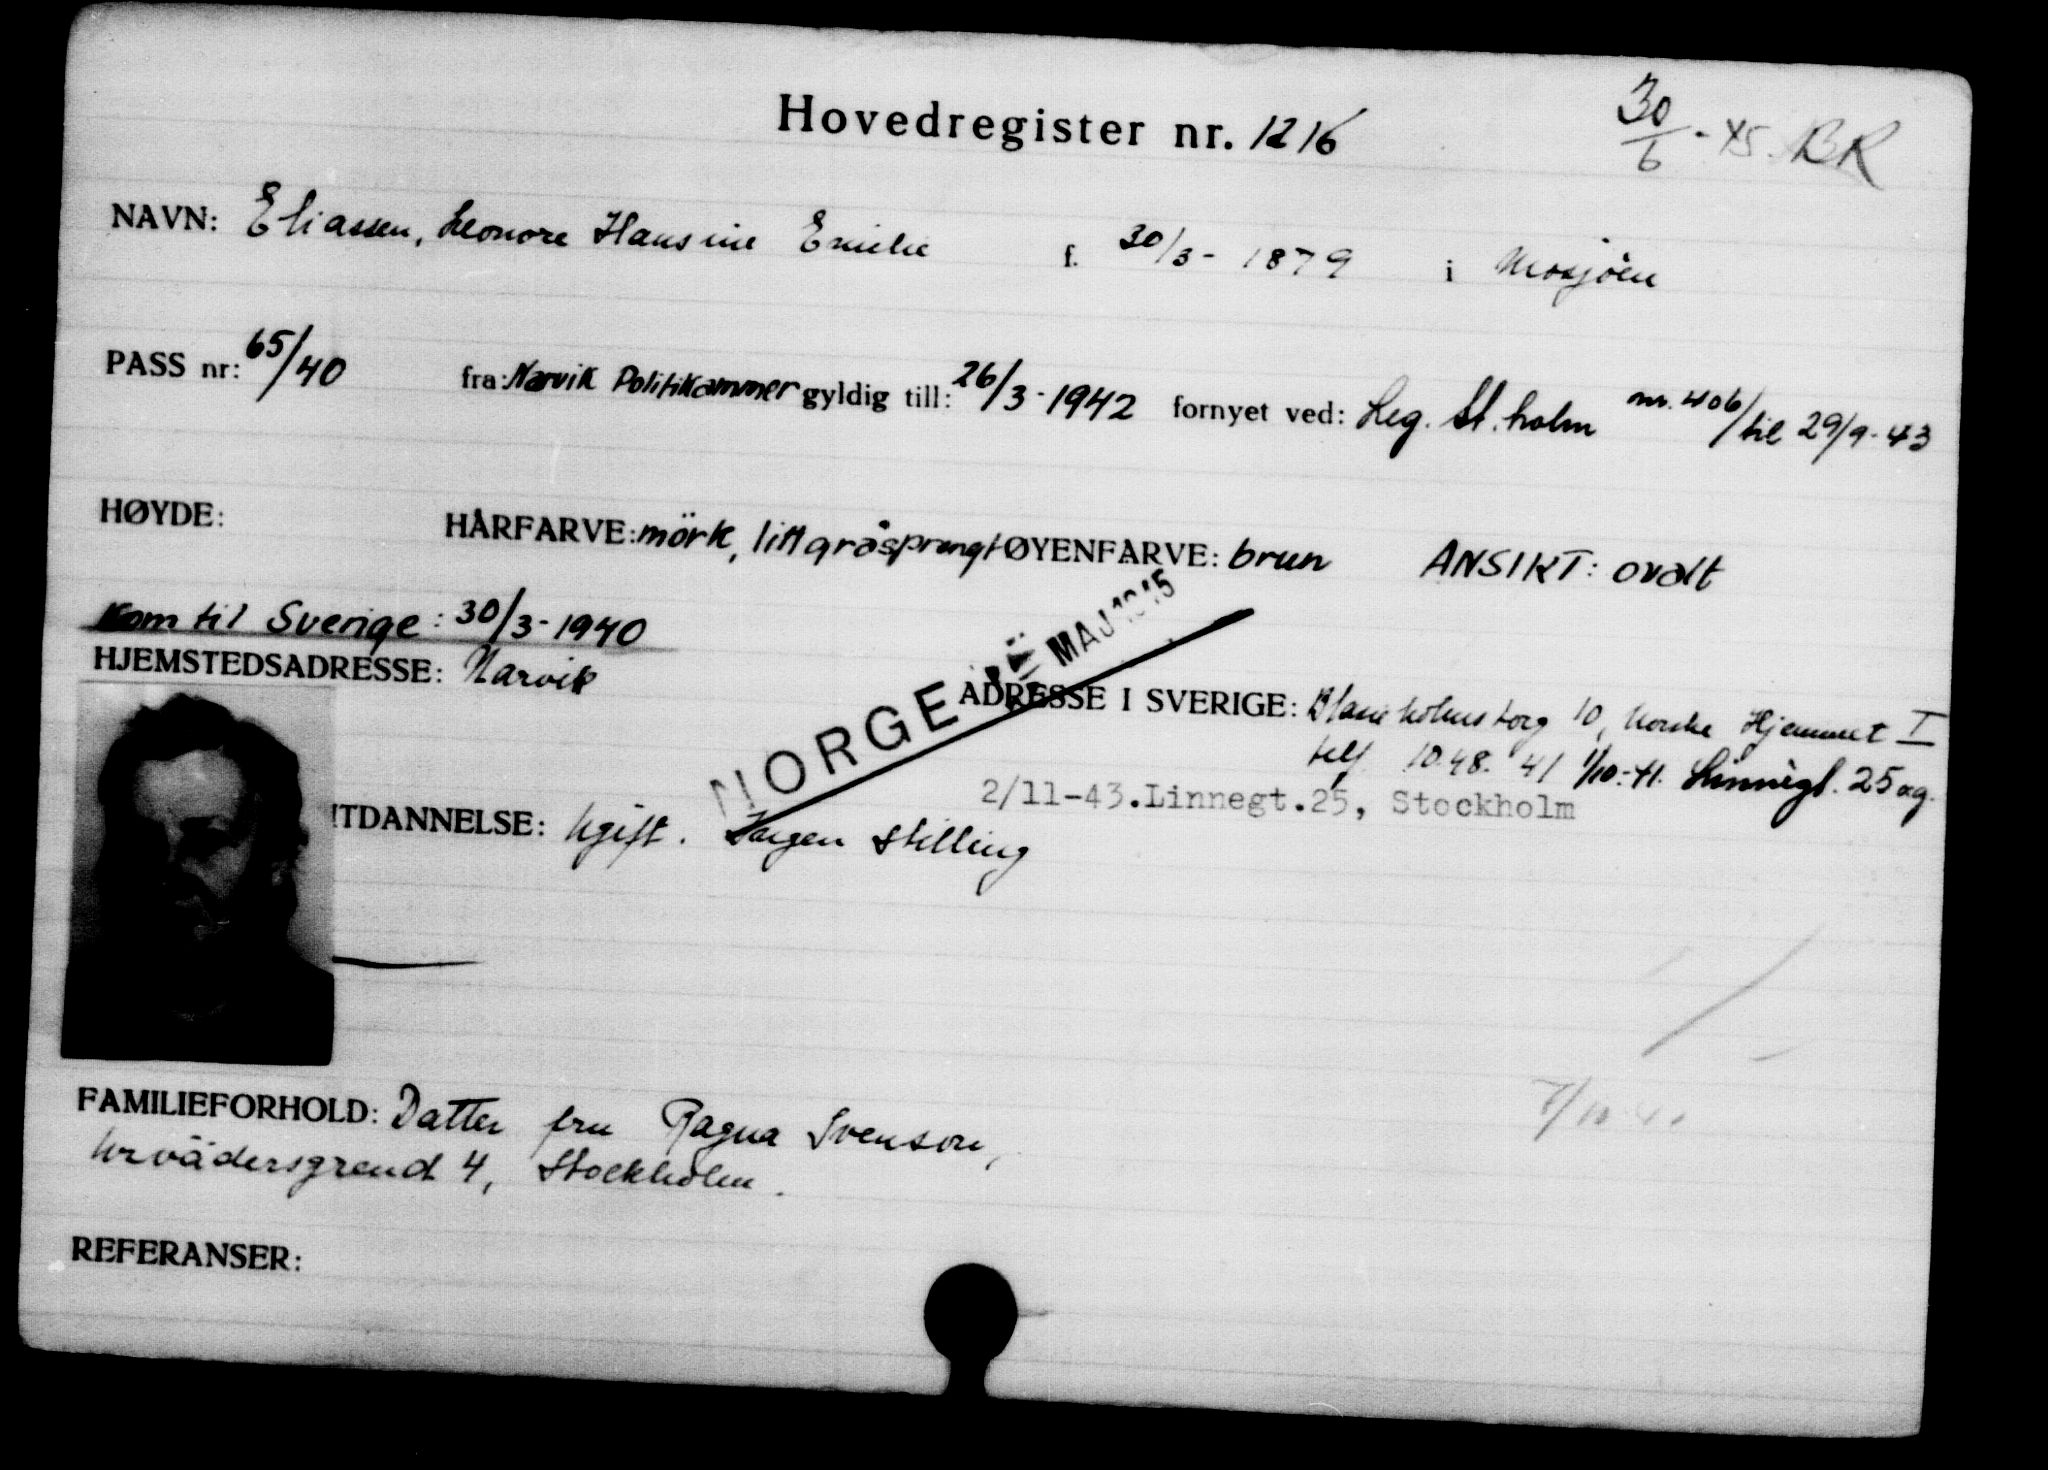 Hovedregister nr. 1216
30/6 - 45. BR
NAVN: Eliassen, Leonore Hansine Emilie f. 30/3 - 1879 i Mosjöen
PASS nr: 65/40 fra: Narvik Politikammer gyldig till: 26/3 - 1942 fornyet ved: Leg. St.holm nr. 406/til 29/9-43
HØYDE: HÅRFARVE: mörk, litt gråsprengt ØYENFARVE: brun ANSIKT: ovalt
Kom til Sverige: 30/3-1940
HJEMSTEDSADRESSE: Narvik
NORGE MAJ 1945
ADRESSE I SVERIGE: Blasieholmstorg 10, Norske Hjemmet I
telf. 10.48.41 1/10.-41. Linnégt. 25 ag.
2/11-43.Linnegt.25, Stockholm
UTDANNELSE: Ugift. Ingen stilling
FAMILIEFORHOLD: Datter fru Ragna Svenson,
Urvädersgrend 4, Stockholm.
REFERANSER: